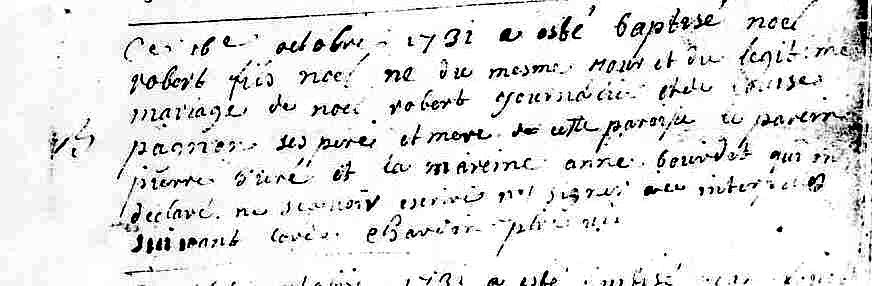 Ce 16e octobre 1731 a esté baptisé noel
robert fils noel né du mesme jour et du legitime
mariage de noel robert journalié et de louise
pagnon ses pere et mere de cette paroisse le parein
pierre et la mareine anne bourdet qui m
declaré ne scavoir escrire ny signer de interpelés
suivant
1731 a esté